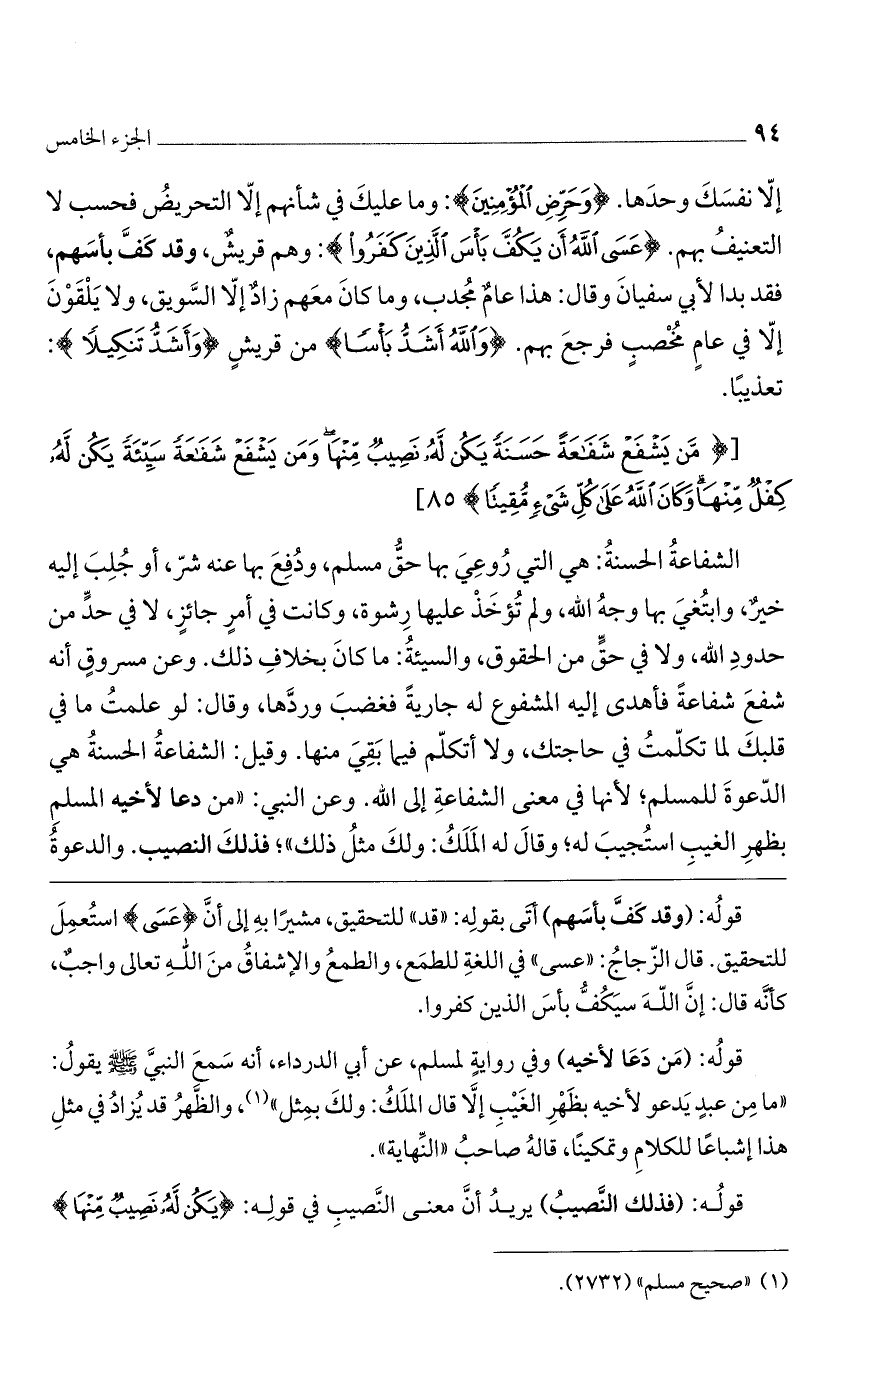 ٩٤ الجزء الخامس
إلّا نفسَكَ وحدَها. ﴿وَحَرِّضِ ٱلْمُؤْمِنِينَ﴾: وما عليكَ في شأنهم إلّا التحريضُ فحسب لا
التعنيفُ بهم. ﴿عَسَى ٱللَّهُ أَن يَكُفَّ بَأْسَ ٱلَّذِينَ كَفَرُوا۟﴾: وهم قريشٌ، وقد كَفَّ بأسَهم،
فقد بدا لأبي سفيانَ وقال: هذا عامٌ مُجدب، وما كانَ معَهم زادٌ إلّا السَّويق، ولا يَلْقَوْنَ
إلّا في عامٍ مُخْصبٍ فرجعَ بهم. ﴿وَٱللَّهُ أَشَدُّ بَأْسًا﴾ من قريشٍ ﴿وَأَشَدُّ تَنكِيلًا﴾:
تعذيبًا.
[﴿مَّن يَشْفَعْ شَفَٰعَةً حَسَنَةً يَكُن لَّهُۥ نَصِيبٌ مِّنْهَا ۖ وَمَن يَشْفَعْ شَفَٰعَةً سَيِّئَةً يَكُن لَّهُۥ
كِفْلٌ مِّنْهَا ۗ وَكَانَ ٱللَّهُ عَلَىٰ كُلِّ شَىْءٍ مُّقِيتًا﴾ ٨٥]
الشفاعةُ الحسنةُ: هي التي رُوعِيَ بها حقُّ مسلم، ودُفِعَ بها عنه شرّ، أو جُلِبَ إليه
خيرٌ، وابتُغيَ بها وجهُ الله، ولم تُؤخَذْ عليها رِشوة، وكانت في أمرٍ جائزٍ، لا في حدٍّ من
حدودِ الله، ولا في حقٍّ من الحقوق، والسيئةُ: ما كانَ بخلافِ ذلك. وعن مسروقٍ أنه
شفعَ شفاعةً فأهدى إليه المشفوع له جاريةً فغضبَ وردَّها، وقال: لو علمتُ ما في
قلبكَ لما تكلّمتُ في حاجتك، ولا أتكلّم فيما بَقِيَ منها. وقيل: الشفاعةُ الحسنةُ هي
الدّعوةَ للمسلم؛ لأنها في معنى الشفاعةِ إلى الله. وعن النبي: «من دعا لأخيه المسلم
بظهرِ الغيبِ استُجيبَ له؛ وقالَ له المَلَكُ: ولكَ مثلُ ذلك»؛ فذلكَ النصيب. والدعوةُ
قولُه: (وقد كَفَّ بأسَهم) أتَى بقولِه: «قد» للتحقيق، مشيرًا بهِ إلى أنَّ ﴿عَسَى﴾ استُعمِلَ
للتحقيق. قال الزّجاجُ: «عسى» في اللغةِ للطمَع، والطمعُ والإشفاقُ منَ اللّهِ تعالى واجبٌ،
كأنَّه قال: إنَّ اللّهَ سيَكُفُّ بأسَ الذين كفروا.
قولُه: (مَن دَعَا لأخيه) وفي روايةٍ لمسلم، عن أبي الدرداء، أنه سَمعَ النبيَّ ﷺ يقولُ:
«ما مِن عبدٍ يَدعو لأخيه بظَهْرِ الغَيْبِ إلَّا قال المَلَكُ: ولكَ بمِثل»(١)، والظَّهرُ قد يُزادُ في مثلِ
هذا إشباعًا للكلامِ وتمكينًا، قالهُ صاحبُ «النِّهاية».
قولُه: (فذلك النَّصيبُ) يريدُ أنَّ معنى النَّصيبِ في قولِه: ﴿يَكُن لَّهُۥ نَصِيبٌ مِّنْهَا﴾
(١) «صحيح مسلم» (٢٧٣٢).